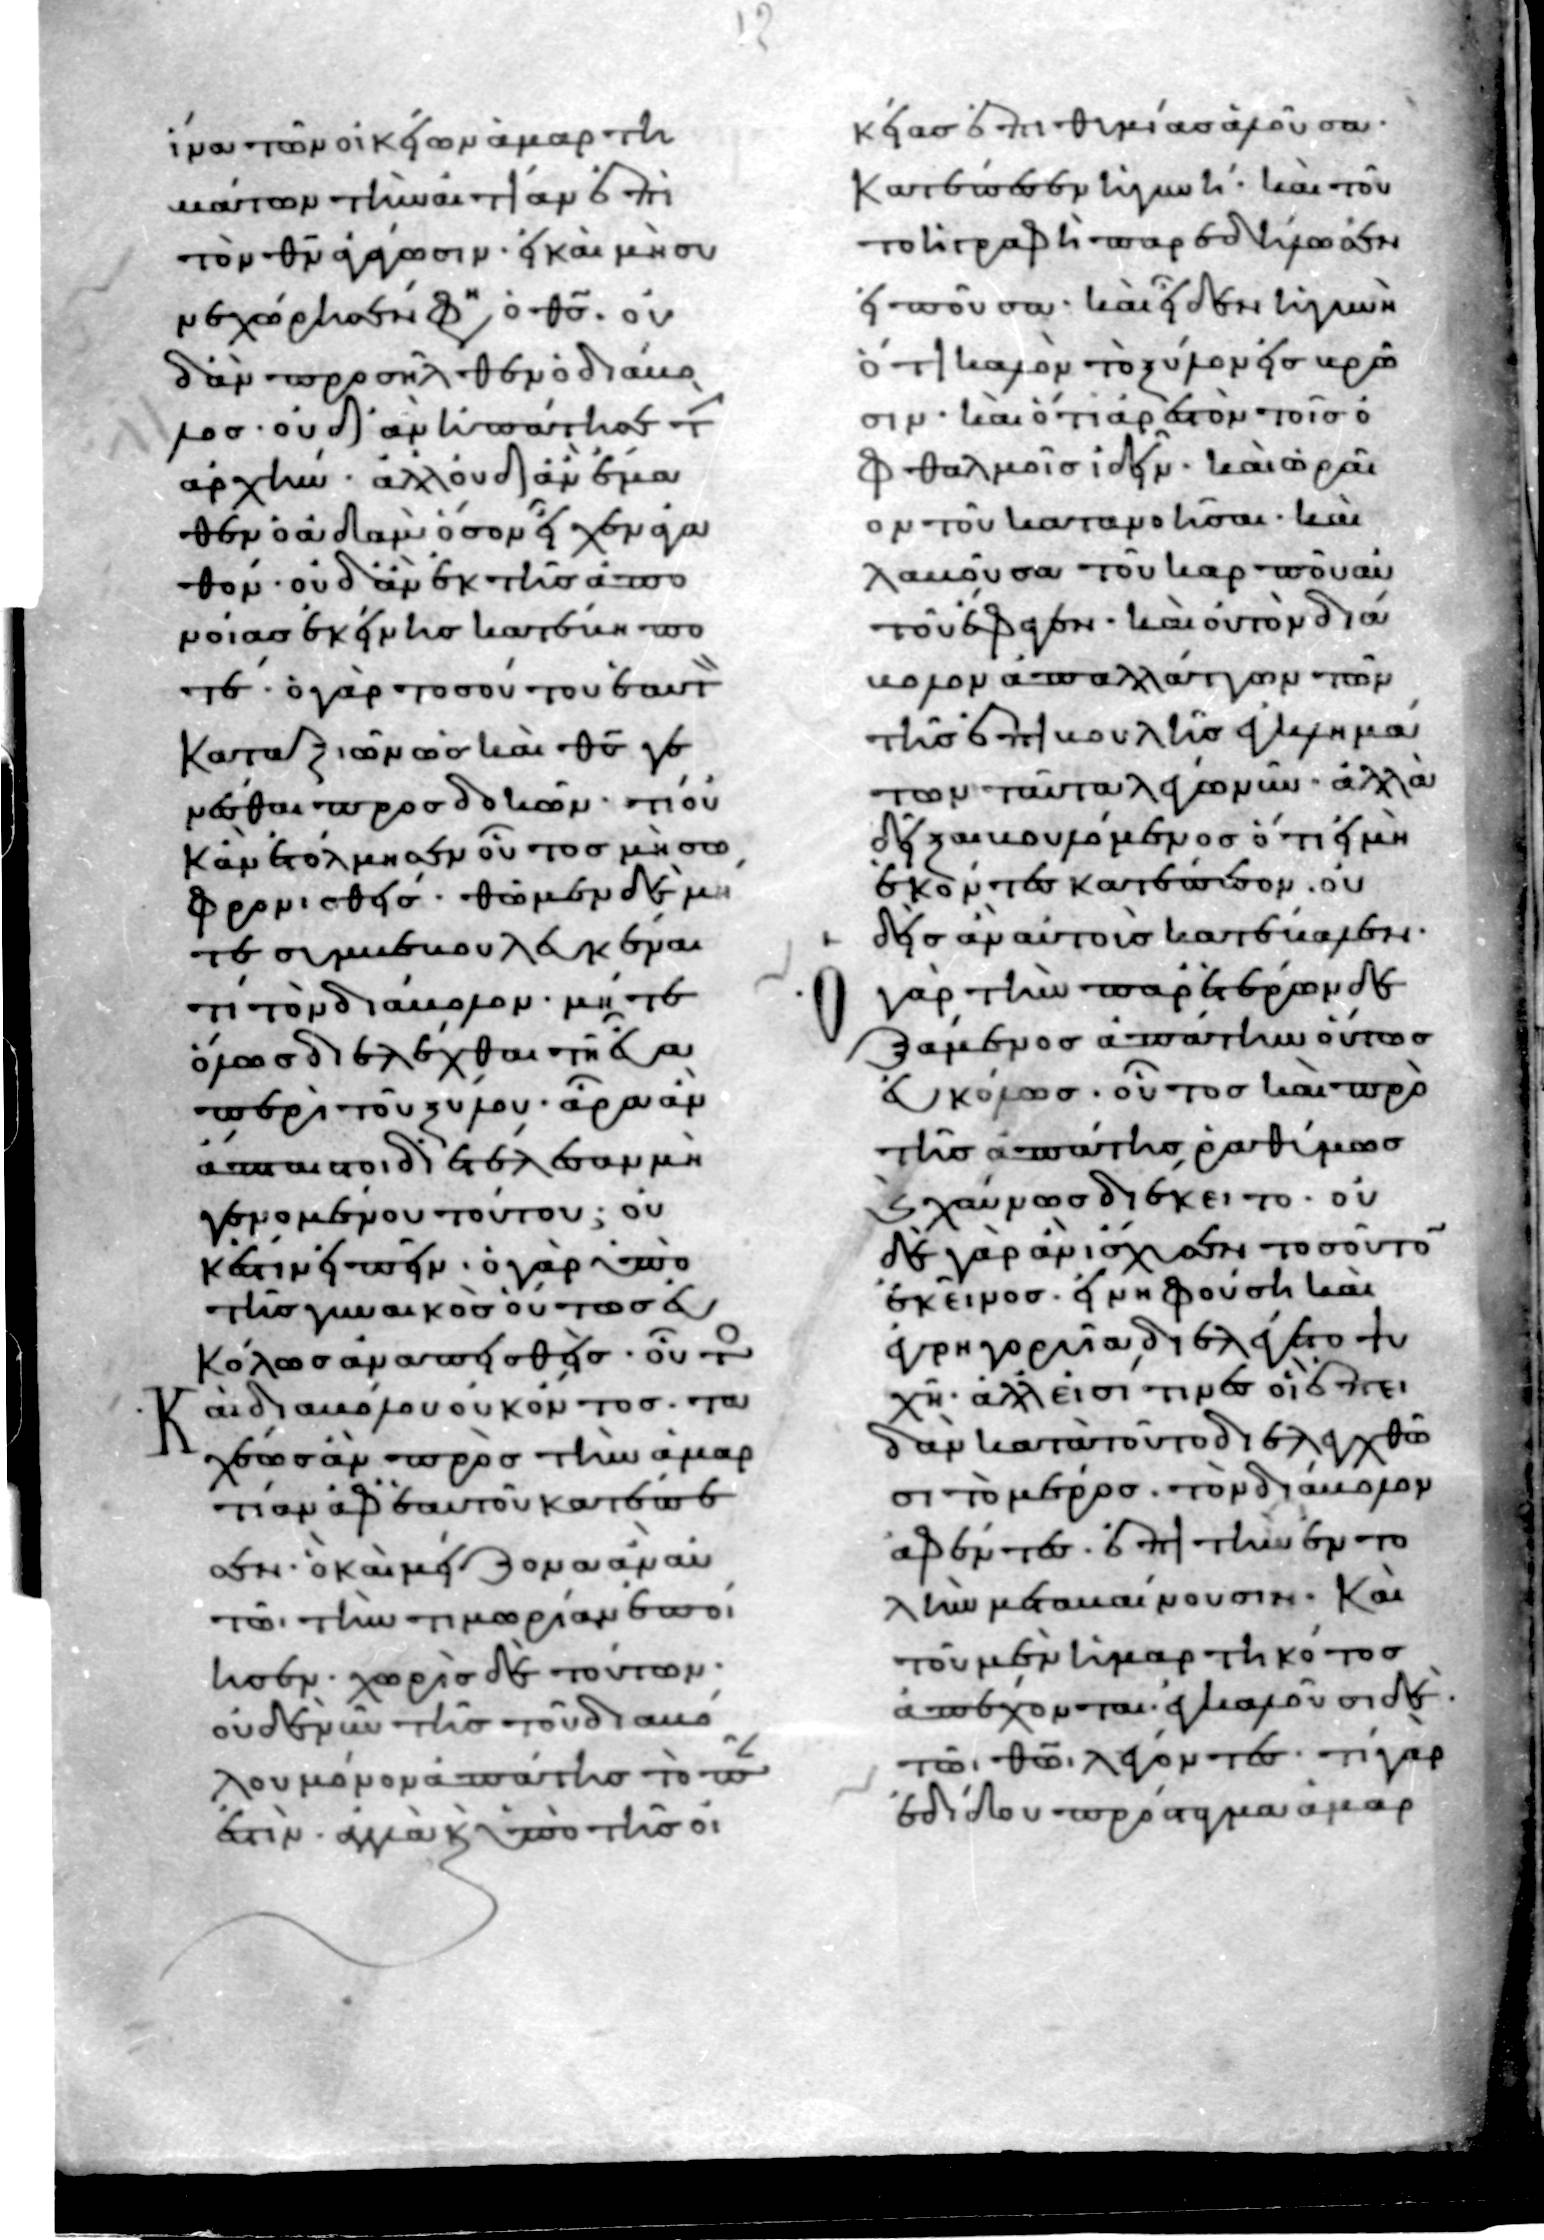 ἵνα τῶν οἰκείων ἁμαρτη
μάτων τὴν αἰτίαν ἐπὶ
τὸν θν ἀγάγωσιν· εἰ καὶ μὴ συ
νεχώρησεν φη ὁ θς· οὐ
δ' ἂν προσῆλθεν ὁ διάβο
λος· οὐδ' ἂν ἠπάτησε τ
ἀρχήν· ἀλλ' οὐδ' ἂν ἔμα
θεν ὁ ἀδὰμ ὅσον εἶχεν ἀγα
θόν· οὐδ' ἂν ἐκ τῆς ἀπο
νοίας ἐκείνης κατέβη πο
τέ· ὁ γὰρ τοσούτου ἑαυτ
καταξιῶν ὡς καὶ θς γε
νέσθαι προσδοκᾶν· τί οὐ
κἂν ἐτόλμησεν οὗτος μὴ σω
φρονισθείς· θῶμεν δὲ μή
τε συμβεβουλευκέναι
τι τὸν διάβολον· μήτε
ὅλως διειλέχθαι τῆ εὔα
περὶ τοῦ ξύλου· ἆρα ἂν
ἄπταιστοι διετέλεσαν μὴ
γενομένου τούτου; οὐ
κ ἔστιν εἰπεῖν· ὁ γὰρ ὑπὸ
τῆς γυναικὸς οὕτως εὐ
κόλως ἀναπεισθεὶς· οὗτο
Καὶ διαβόλου οὐκ ὄντος· τα
χέως ἂν πρὸς τὴν ἁμαρ
τίαν ἀφ' ἑαυτοῦ κατέπε
σεν· ὃ καὶ μείζονα ἂν αὐ
τῶι τὴν τιμωρίαν ἐποί
ησεν· χωρὶς δὲ τούτων·
οὐδὲ νῦν τῆς τοῦ διαβό
λου μόνον ἀπάτης τὸ πᾶν
ἐστὶν· ἀλλὰ κ ὑπὸ τῆς οἰ
κείας ἐπιθυμίας ἁλοῦσα·
κατέπεσεν ἡ γυνή· καὶ τοῦ
το ἡ γραφὴ παρεδήλωσεν
εἰποῦσα· καὶ εἶδεν ἡ γυνὴ
ὅτι καλὸν τὸ ξύλον εἰς βρῶ
σιν· καὶ ὅτι ἀρεστὸν τοῖς ὀ
φθαλμοῖς ἰδεῖν· καὶ ὡραῖ
ον τοῦ κατανοῆσαι· καὶ
λαβοῦσα τοῦ καρποῦ αὐ
τοῦ ἔφαγεν· καὶ οὐ τὸν διά
βολον ἀπαλλάττων τῶν
τῆς ἐπιβουλῆς ἐγκλημά
των ταῦτα λέγω νῦν· ἀλλὰ
δεῖξαι βουλόμενος ὅτι εἰ μὴ
ἑκόντες κατέπεσον· οὐ
δεὶς ἂν αὐτοὺς κατέβαλεν·
Ὁ γὰρ τὴν παρ' ἑτέρων δε
ξάμενος ἀπάτην οὕτως
εὐκόλως· οὗτος καὶ πρὸ
τῆς ἀπάτης ῥαθύμως
κ χαύνως διέκειτο· οὐ
δὲ γὰρ ἂν ἴσχυσεν τοσοῦτο
ἐκεῖνος· εἰ νηφούση καὶ
ἐγρηγορυῖα διελέγετο ψυ
χῆ· ἀλλ' εἰσί τινες οἳ ἐπει
δὰν κατὰ τοῦτο διελεγχθῶ
σι τὸ μέρος· τὸν διάβολον
ἀφέντες· ἐπὶ τὴν ἐντο
λὴν μεταβαίνουσιν· Καὶ
τοῦ μὲν ἡμαρτηκότος
ἀπέχονται· ἐγκαλοῦσι δὲ·
τῶι θῶι λέγοντες· τί γὰρ
ἐδίδου πρόσταγμα ἁμαρ